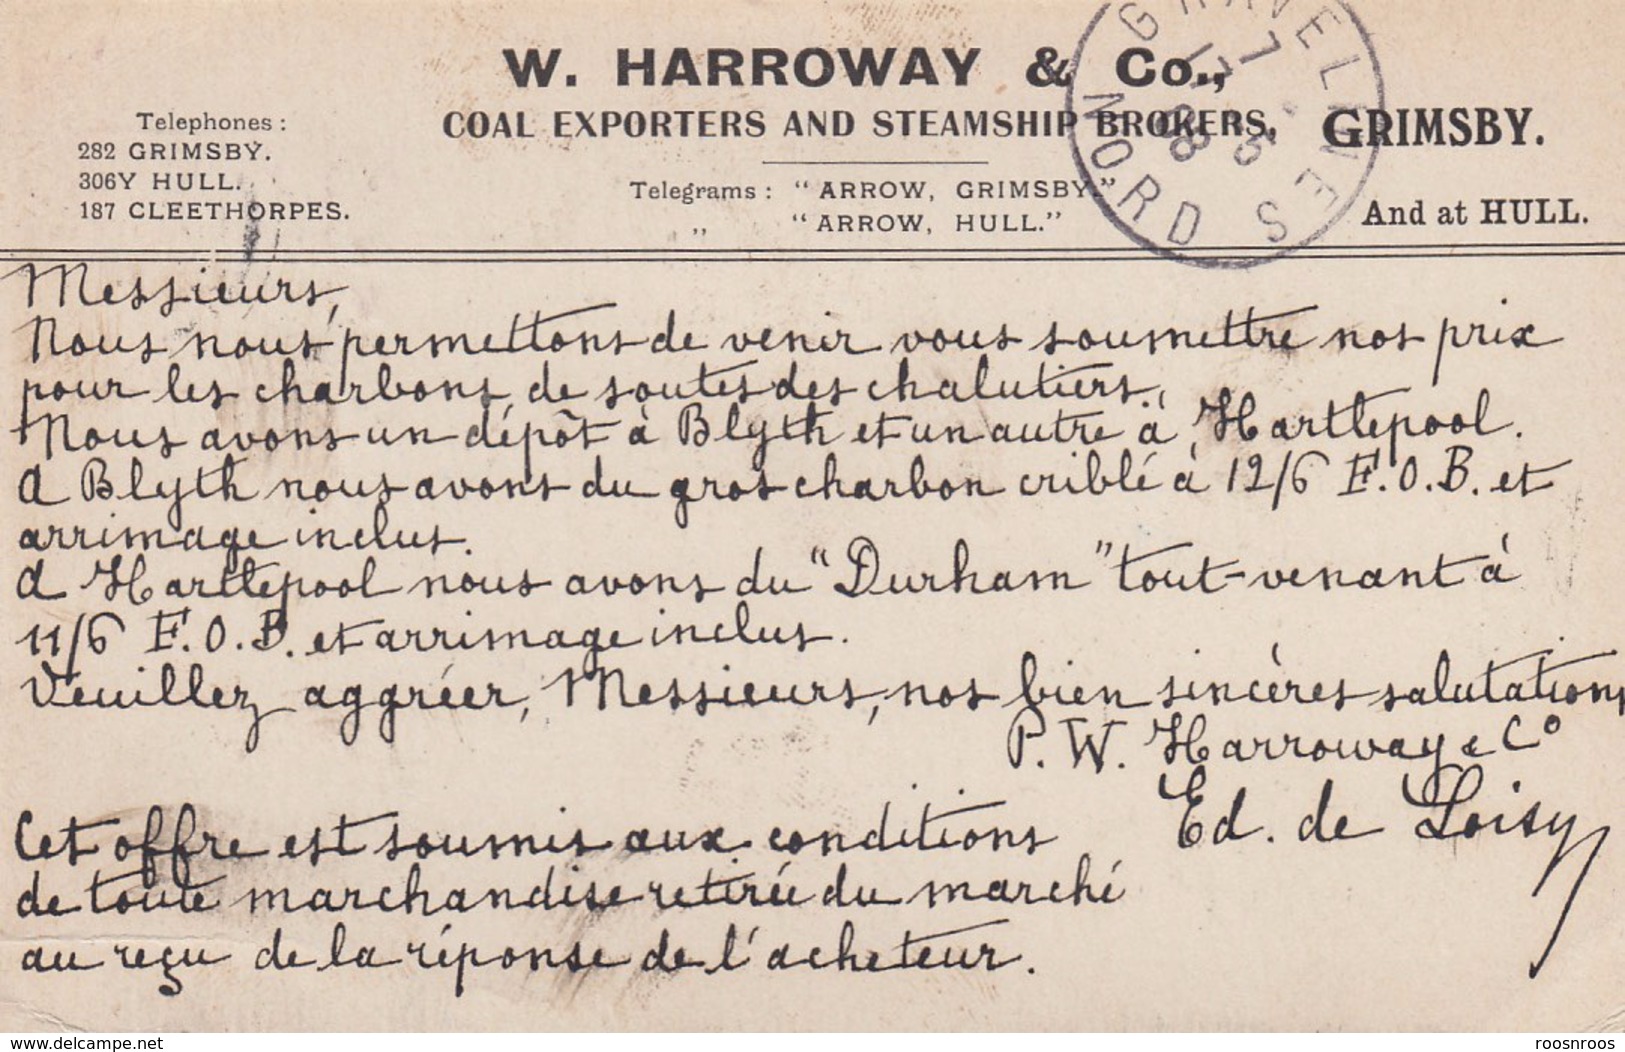 W. HARROWAY & Co.,
COAL EXPORTERS AND STEAMSHIP BROKERS, GRIMSBY.
And at HULL.
Telephones :
282 GRIMSBY.
306Y HULL.
187 CLEETHORPES.
Telegrams : “ARROW, GRIMSBY.”
„ “ARROW, HULL.”
GRAVELINES
NORD
Messieurs,
Nous nous permettons de venir vous soumettre nos prix
pour les charbons de soutes des chalutiers.
Nous avons un dépôt à Blyth et un autre à Hartlepool.
A Blyth nous avons du gros charbon criblé à 12/6 F.O.B. et
arrimage inclus.
A Hartlepool nous avons du “Durham” tout-venant à
11/6 F.O.B. et arrimage inclus.
Veuillez aggréer, Messieurs, nos bien sincères salutations
P. W. Harroway & Co
Ed. de Loisy
Cet offre est soumis aux conditions
de toute marchandise retirée du marché
au reçu de la réponse de l'acheteur.
www.delcampe.net
roosnroos